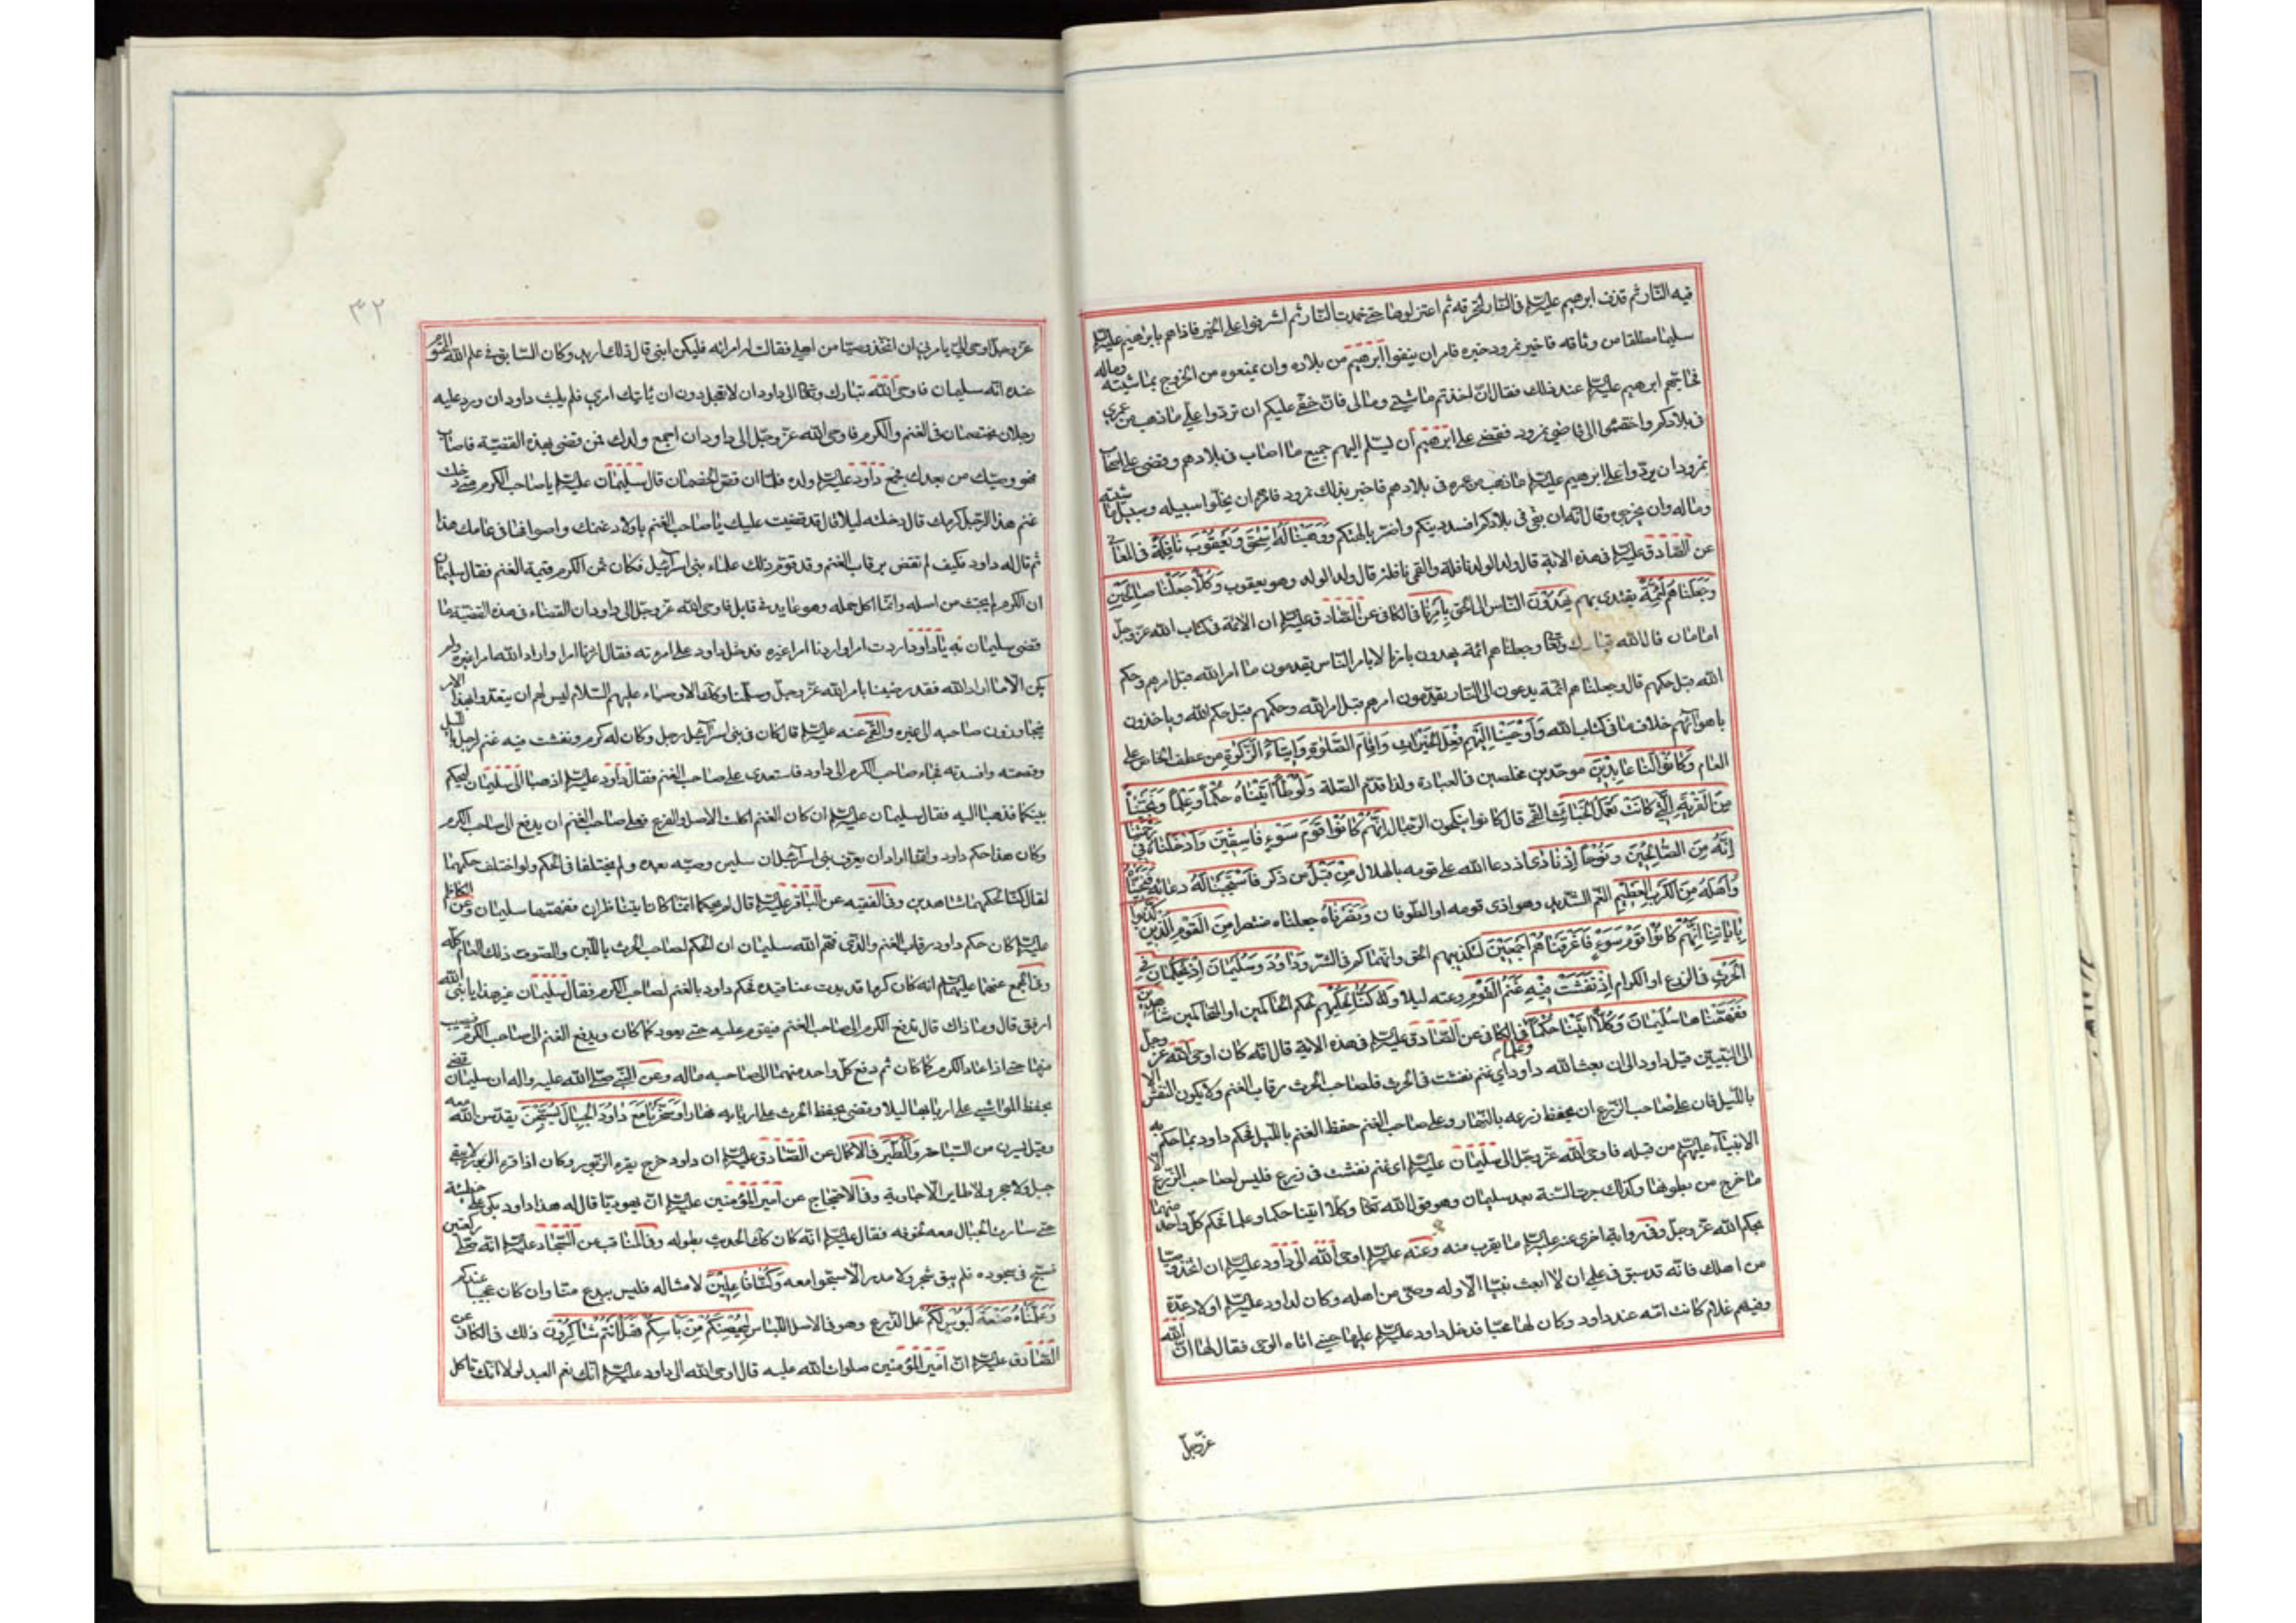 فيه النار ثم قذف ابرهيم عليه السلام في النار لتحرقه ثم اعتزلوها حتى خمدت النار ثم اشرفوا على الحير فاذا هم بابرهيم عليه السلام
سليما مطلقا من وثاقه فاخبر نمرود خبره فامر ان ينفوا ابرهيم من بلاده وان يمنعوه من الخروج بماشيته وماله
فحاجهم ابرهيم عليه السلام عند ذلك فقال ان اخذتم ماشيتي ومالي فان حقي عليكم ان تردوا علي ما ذهب من عمري
في بلادكم واختصموا الى قاضي نمرود فقضى على ابرهيم ان يسلم اليهم جميع ما اصاب في بلادهم وقضى على اصحاب
نمرود ان يردوا على ابرهيم عليه السلام ما ذهب من عمره في بلادهم فاخبر بذلك نمرود فامرهم ان يخلوا سبيله وسبيل ماشيته
وماله وان يخرجوه وقال انه ان بقي في بلادكم افسد دينكم واضر بالهتكم ووهبنا له اسحق ويعقوب نافلة في المعاني
عن الصادق عليه السلام في هذه الاية قال ولد الولد نافلة والقمي نافلة قال ولد الولد وهو يعقوب وكلا جعلنا صالحين
وجعلناهم ائمة يقتدى بهم يهدون الناس الى الحق بامرنا في الكافي عن الصادق عليه السلام ان الائمة في كتاب الله عز وجل
امامان قال الله تبارك وتعا وجعلناهم ائمة يهدون بامرنا لا بامر الناس يقدمون ما امر الله قبل امرهم وحكم
الله قبل حكمهم قال وجعلناهم ائمة يدعون الى النار يقدمون امرهم قبل امر الله وحكمهم قبل حكم الله وياخذون
باهوائهم خلاف ما في كتاب الله واوحينا اليهم فعل الخيرات واقام الصلوة وايتاء الزكوة من عطف الخاص على
العام وكانوا لنا عابدين موحدين مخلصين في العبادة ولذا قدم الصلة ولوطا اتيناه حكما وعلما ونجيناه
من القرية التي كانت تعمل الخبائث القمي قال كانوا ينكحون الرجال انهم كانوا قوم سوء فاسقين وادخلناه في رحمتنا
انه من الصالحين ونوحا اذ نادى اذ دعا الله على قومه بالهلاك من قبل من ذكر فاستجبنا له دعائه فنجيناه
واهله من الكرب العظيم الغم الشديد وهو اذى قومه او الطوفان ونصرناه جعلناه منتصرا من القوم الذين كذبوا
باياتنا انهم كانوا قوم سوء فاغرقناهم اجمعين لتكذيبهم الحق وانهماكهم في الشر وداود وسليمان اذ يحكمان في
الحرث في الزرع او الكرام اذ نفشت فيه غنم القوم رعته ليلا وكنا لحكمهم لحكم الحاكمين او المتحاكمين شاهدين
ففهمناها سليمان وكلا اتينا حكما وعلما في الكافي عن الصادق عليه السلام في هذه الاية قال انه كان اوحى الله عز وجل
الى النبيين قبل داود الى ان بعث الله داود اي غنم نفشت في الحرث فلصاحب الحرث رقاب الغنم ولا يكون النفش الا
بالليل فان على صاحب الزرع ان يحفظ زرعه بالنهار وعلى صاحب الغنم حفظ الغنم بالليل فحكم داود بما حكم به
الانبياء عليهم من قبله فاوحى الله عز وجل الى سليمان عليه السلام اي غنم نفشت في زرع فليس لصاحب الزرع الا
ما خرج من بطونها وكذلك جرت السنة بعد سليمان وهو قول الله تعا وكلا اتينا حكما وعلما فحكم كل واحد منهما
بحكم الله عز وجل وفي رواية اخرى عنه عليه السلام ما يقرب منه وعنه عليه السلام اوحى الله الى داود عليه السلام ان اتخذ وصيا
من اهلك فانه قد سبق في علمي ان لا ابعث نبيا الا وله وصي من اهله وكان لداود عليه السلام اولاد عدة
وفيهم غلام كانت امه عند داود وكان لها محبا فدخل داود عليه السلام عليها حين اتاه الوحي فقال لها ان الله
عز وجل
٣٢
عز وجل اوحى الي يامرني ان اتخذ وصيا من اهلي فقالت له امراته فليكن ابني قال ذلك اريد وكان السابق في علم الله المحتوم
عنده انه سليمان فاوحى الله تبارك وتعا الى داود ان لا تعجل دون ان ياتيك امري فلم يلبث داود ان ورد عليه
رجلان يختصمان في الغنم والكرم فاوحى الله عز وجل الى داود ان اجمع ولدك فمن قضى بهذه القضية فاصاب
فهو وصيك من بعدك فجمع داود عليه السلام ولده فلما ان قص الخصمان قال سليمان عليه السلام يا صاحب الكرم متى دخلت
غنم هذا الرجل كرمك قال دخلته ليلا قال قد قضيت عليك يا صاحب الغنم باولاد غنمك واصوافها في عامك هذا
ثم قال له داود فكيف لم تقض برقاب الغنم وقد قوم ذلك علماء بني اسرائيل فكان ثمن الكرم قيمة الغنم فقال سليمان
ان الكرم لم يجتث من اصله وانما اكل حمله وهو عايد في قابل فاوحى الله عز وجل الى داود ان القضاء في هذه القضية ما
قضى سليمان به يا داود اردت امرا واردنا امرا غيره فدخل داود على امراته فقال اردنا امرا واراد الله امرا غيره ولم
يكن الا ما اراد الله فقد رضينا بامر الله عز وجل وسلمنا وكذا الاوصياء عليهم السلام ليس لهم ان يتعدوا بهذا الامر
فيجاوزون صاحبه الى غيره والقمي عنه عليه السلام قال كان في بني اسرائيل رجل وكان له كرم ونفشت فيه غنم لرجل بالليل
وقضمته وافسدته فجاء صاحب الكرم الى داود فاستعدى على صاحب الغنم فقال داود عليه السلام اذهبا الى سليمان ليحكم
بينكما فذهبا اليه فقال سليمان عليه السلام ان كان الغنم اكلت الاصل والفرع فعلى صاحب الغنم ان يدفع الى صاحب الكرم
وكان هذا حكم داود وانما اراد ان يعرف بني اسرائيل ان سليمن وصيه بعده ولم يختلفا في الحكم ولو اختلف حكمهما
لقال كنا لحكمهما شاهدين وفي الفقيه عن الباقر عليه السلام قال لم يحكما انما كانا يتناظران ففهمها سليمان وعن الكاظم
عليه السلام كان حكم داود رقاب الغنم والذي فهم الله سليمان ان الحكم لصاحب الحرث باللبن والصوف ذلك العام كله
وفي المجمع عنهما عليهما السلام انه كان كرما قد بدت عناقيده فحكم داود بالغنم لصاحب الكرم فقال سليمان غير هذا يا نبي الله
ارفق قال وما ذاك قال تدفع الكرم الى صاحب الغنم فيقوم عليه حتى يعود كما كان ويدفع الغنم الى صاحب الكرم فيصيب
منها حتى اذا عاد الكرم كما كان ثم دفع كل واحد منهما الى صاحبه ماله وعن النبي صلى الله عليه واله ان سليمان قضى
بحفظ المواشي على اربابها ليلا وقضى بحفظ الحرث على اربابه نهارا وسخرنا مع داود الجبال يسبحن يقدسن الله معه
وقيل يسرن من السباحة والطير في الاكمال عن الصادق عليه السلام ان داود خرج يقرء الزبور وكان اذا قرء الزبور لا يبقى
جبل ولا حجر ولا طاير الا جاوبه وفي الاحتجاج عن امير المؤمنين عليه السلام ان يهوديا قال له هذا داود بكى على خطيئته
حتى سارت الجبال معه لخوفه فقال عليه السلام انه كان كذلك الحديث بطوله وفي المناقب عن السجاد عليه السلام انه صلى ركعتين
فسبح في سجوده فلم يبق شجر ولا مدر الا سبحوا معه وكنا فاعلين لامثاله فليس ببدع منا وان كان عجيبا عندكم
وعلمناه صنعة لبوس لكم عمل الدرع وهو في الاصل اللباس ليحصنكم من باسكم فهل انتم شاكرون ذلك في الكافي عن
الصادق عليه السلام ان امير المؤمنين صلوات الله عليه قال اوحى الله الى داود عليه السلام انك نعم العبد لولا انك تاكل